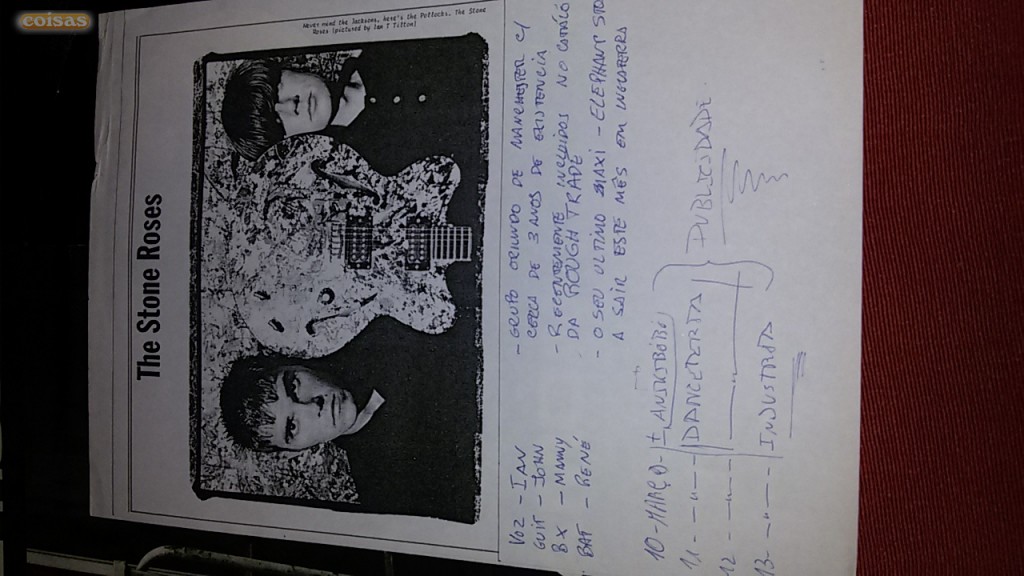 coisas
Never mind the Jacksons, here's the Pollocks. The Stone
Roses (pictured by Ian T Tilton)
The Stone Roses
VOZ - IAN
GUIT - JOHN
BX - MANNY
BAT - RENÉ
- GRUPO ORIUNDO DE MANCHESTER C/
CERCA DE 3 ANOS DE EXISTENCIA
- RECENTEMENTE INCLUIDOS NO
DA ROUGH TRADE
- O SEU ULTIMO MAXI - ELEPHANT
A SAIR ESTE MÊS EM INGLATERRA
10 - MARÇO -
11 - -"- - DANCETERIA
12 - -"- -
13 - -"- - INDUSTRIA
PUBLICIDADE.